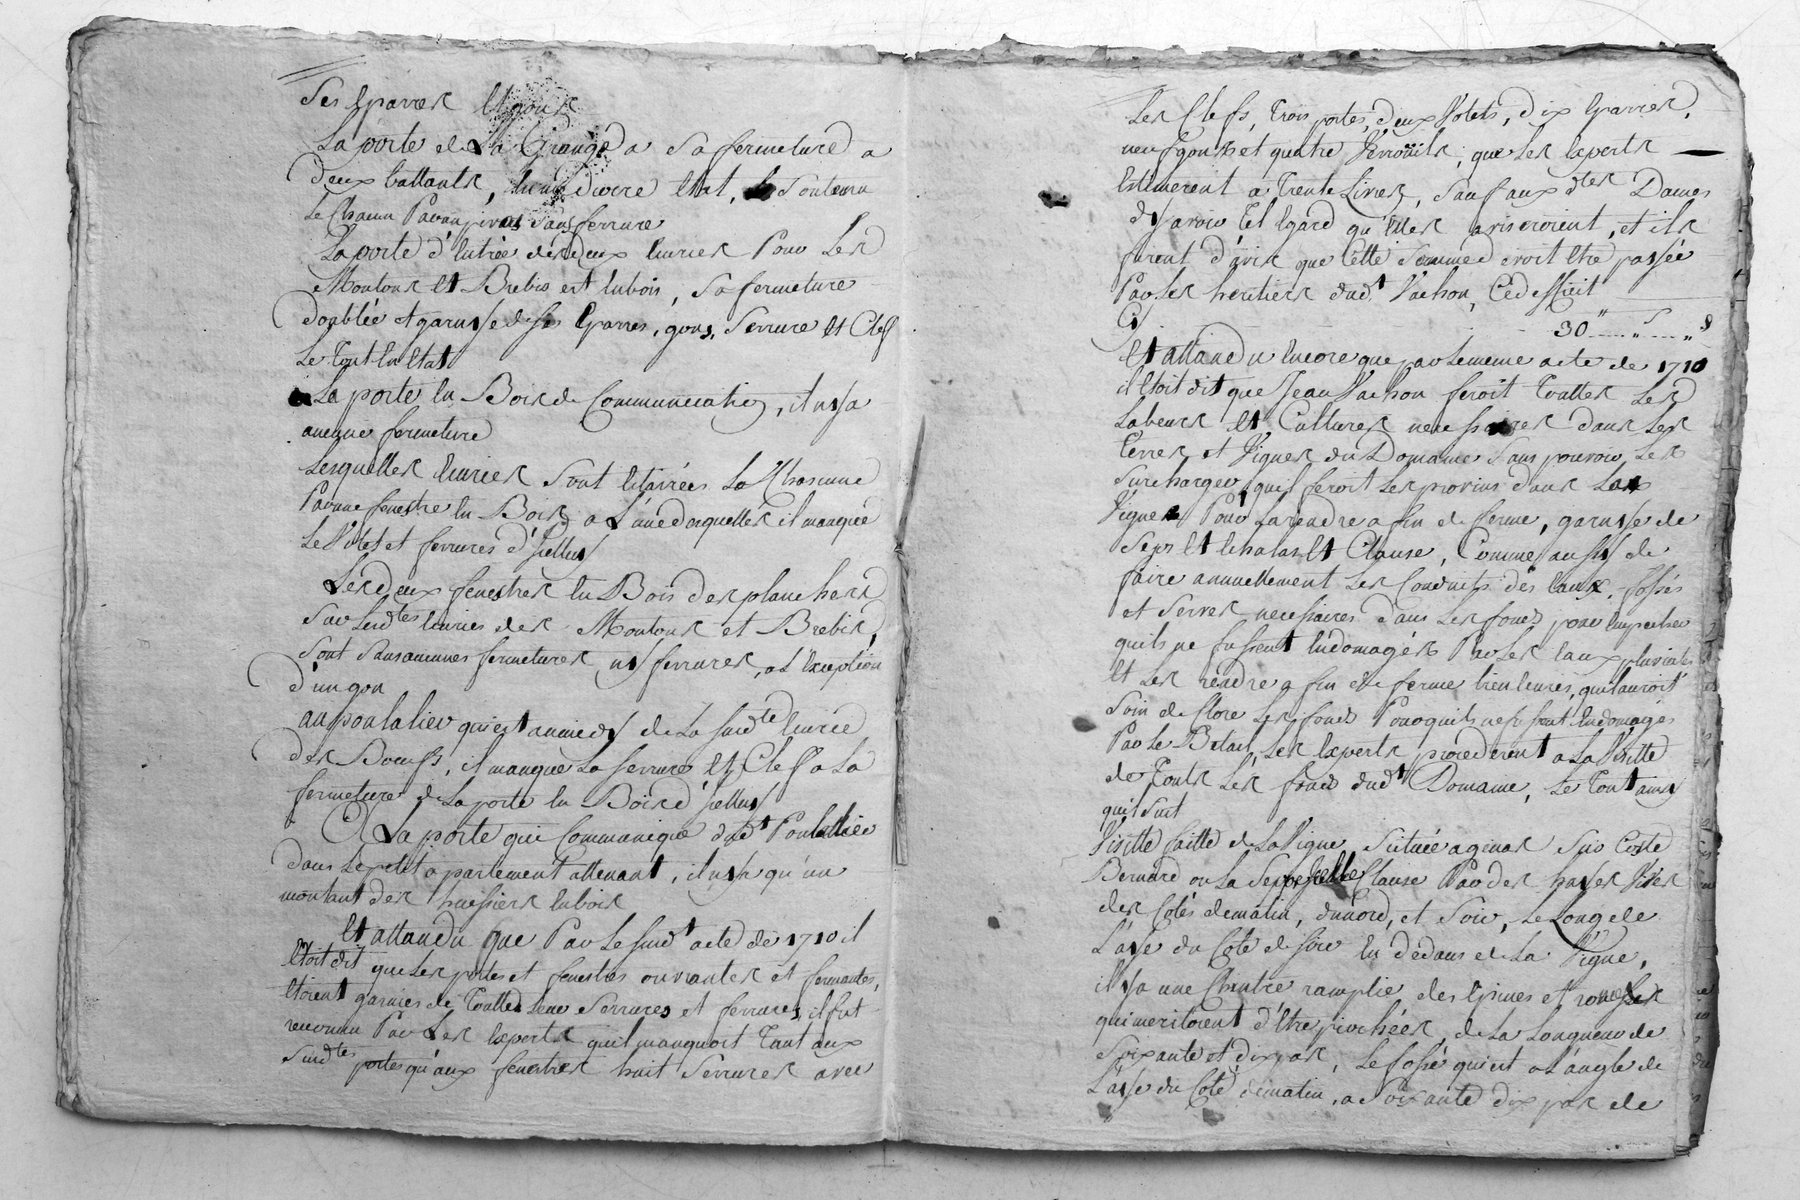 Ses Eparres Et gons
La porte de La Grange a Sa fermeture a
deux battants, hem divoire Etat, Le Soutenu
Le Chacun Par un pivot sans ferrure
La porte d'Entrée des deux Ecuries Pour Les
Moutons Et Brebis est En bois, Sa fermeture
doublée et garnisse de Ses Eparres, gons, Serrure Et Clef
Le Tout En Etat
La porte En Bois de Communication, il n'y a
aucune fermeture
Lesquelles Ecuries Sont Eclairées La Chascune
Par une fenestre En Bois a L'une desquelles il manque
Le Volet et ferrures d'Icelluy
Les deux fenestres En Bois des planchers
Sur Lesd.tes Ecuries des Moutons et Brebis,
Sont Sans aucunes fermetures ny ferrures, a L'Exception
d'un gon
au poulalier qui est au midy de La sud.te Ecurie
des Boeufs, il manque La Serrure Et Clef a La
fermeture de La porte En Bois d'Icelluy
A La porte qui Communique dud.t Poulallier
dans Le petit apartement attenant, il n'y a qu'un
montant des huissiers En bois
Et attandu que Par Le sud.t acte de 1710 il
Etoit dit que Les portes et fenestres ouvrantes et fermantes,
Etoient garnies de Touttes Leurs Serrures et ferrures, il fut
reconnu Par Les Experts qu'il manquoit Tant aux
Sud.tes portes qu'aux fenestres huit Serrures avec
Les Clefs, Trois portes, deux Volets, dix Eparres,
neuf gons et quatre Verrouils, que Les Experts
Estimerent a Trente Livres, Sauf aux d.tes Dames
dy avoir Tel Egard qu'Elles aviseroient, et ils
furent d'avis que Cette Somme devoit Etre passée
Par Les heritiers dud.t Vachon, Ced. Effieit
Cy 30 " S " d
Et attandu Encore que par Le meme acte de 1710
il Etoit dit que Jean Vachon feroit Touttes Les
Labeurs Et Cultures necessaires dans Les
Terres et Vignes du Domaine Sans pouvoir Les
Surcharger, qu'il feroit Les provins dans Las
Vigne Pour La rendre a fin de ferme, garnisse de
Seps Et Echalas Et Clause, Comme aussy de
faire annuellement Les Conduits des Eaux, fossés
et Serves necessaires dans Les fonds pour Empecher
qu'ils ne fussent Endomagés Par Les Eaux pluviales
Et Les rendre a fin de ferme bien Cures, qu'il auroit
Soin de Clore Les fonds Pour qu'ils ne fussent Endomagés
Par Le Betail, Les Experts procederent a La Visitte
de Touts Les fonds dud.t Domaine, Le Tout ainsy
qu'il Suit
Visitte faitte de La Vigne Scituée a genas Sur Coste
Bernard ou La Seppe, Icelle Clause Par des hayes Vives
des Cotés de matin, du nord, et Soir, Le Long de
L'aye du Coté de Soir En dedans de La Vigne,
il y a une Cheintre ramplie des Epines et ronces
qui meritoient d'Etre piochées, de La Longueur de
Soixante et dix pas, Le fossé qui est a L'angle de
L'aye du Coté de matin, a Soixante dix pas de